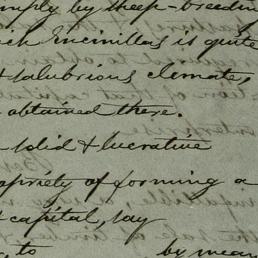 simply by sheep-breeding
which Encinillas is quite
& salubrious climate,
obtained there.
solid & lucrative
propriety of forming a
& capital, say
to by mean